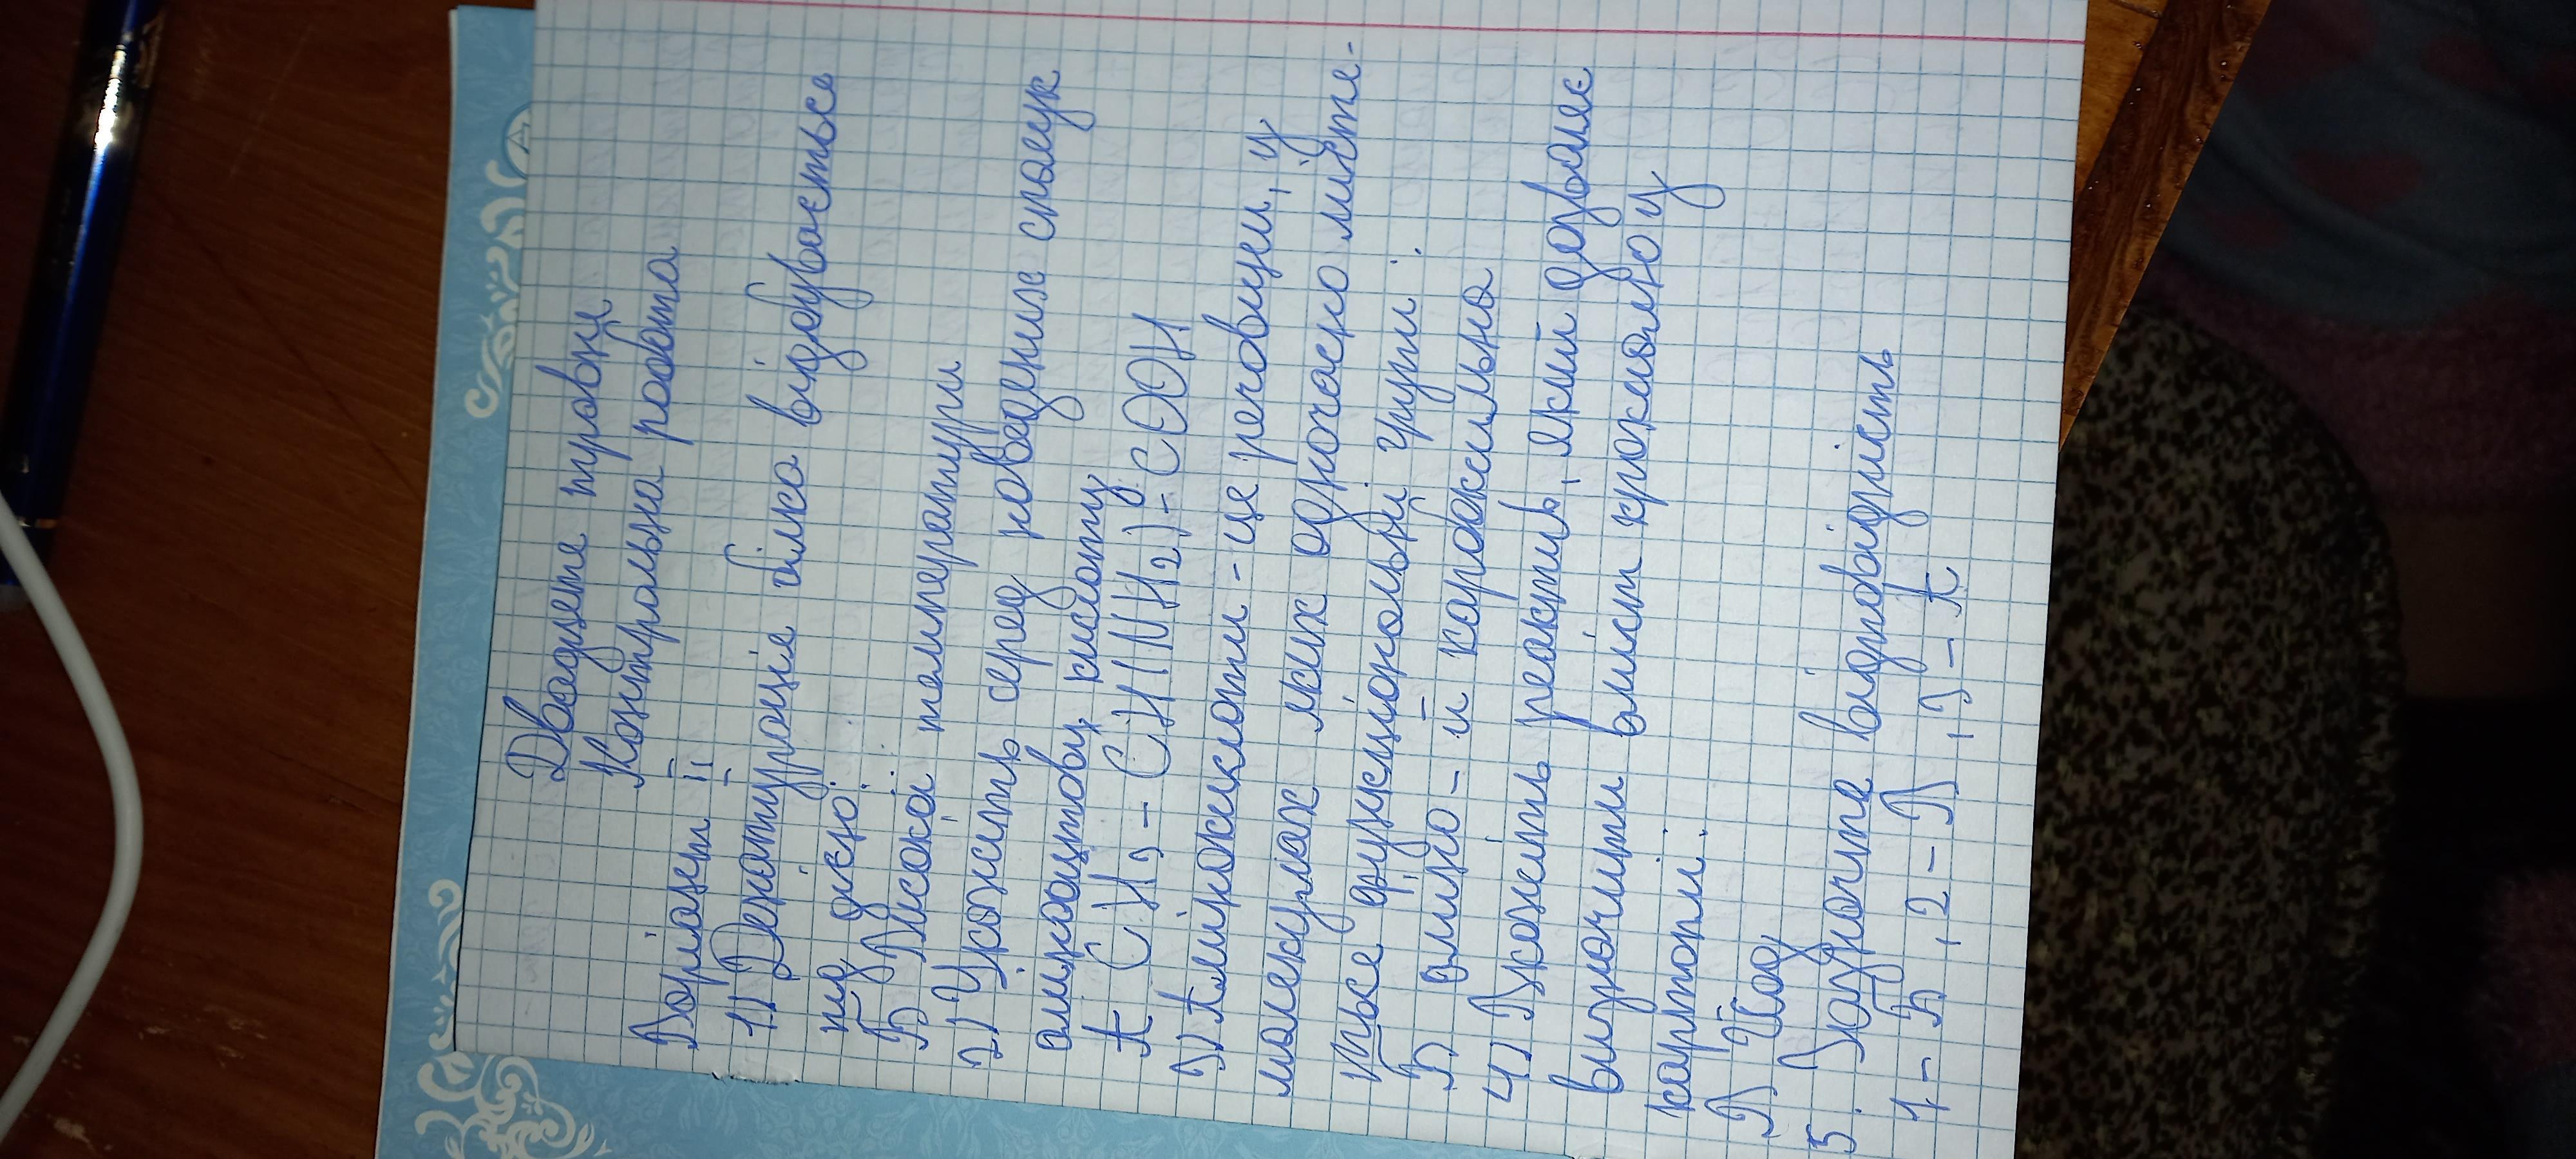 Двадцяте травня
Контрольна робота
Варіант ІІ
1) Денатурація білка відбувається
під дією:
Б Високої температури
2) Укажіть серед наведених сполук
амінооцтову кислоту
А СН3 – СН(NH2) – СООН
3) Амінокислоти – це речовини, у
молекулах яких одночасно містя-
ться функціональні групи:
Б) аміно- й карбоксильна
4) Вкажіть реактив, який дозволяє
визначити вміст крохмалю у
картоплі.
В Йод
5. Встановіть відповідність
1 – Б, 2 – В, 3 – А